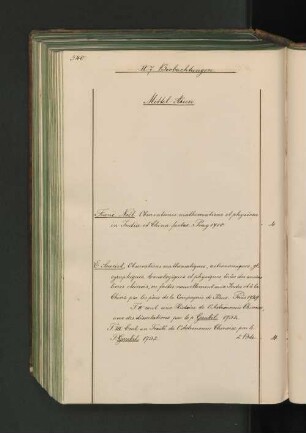 340.
H. 7 Beobachtungen
Mittel Asien
Franc. Noël Observationes mathematicae et physicae
in India et China factae. Prag 1710. 4.
E. Souciet Observations mathématiques, astronomiques, géo-
graphiques, chronologiques et physiques tirées des anciens
livres chinois, ou faites nouvellement aux Indes et à la
Chine par les pères de la Compagnie de Jésus. Paris 1729
T. II cont. une Histoire de l'Astronomie Chinoise
avec des dissertations par le p. Gaubil. 1732.
T. III Cont. un Traité de l'Astronomie Chinoise par le
P. Gaubil 1732. 4.